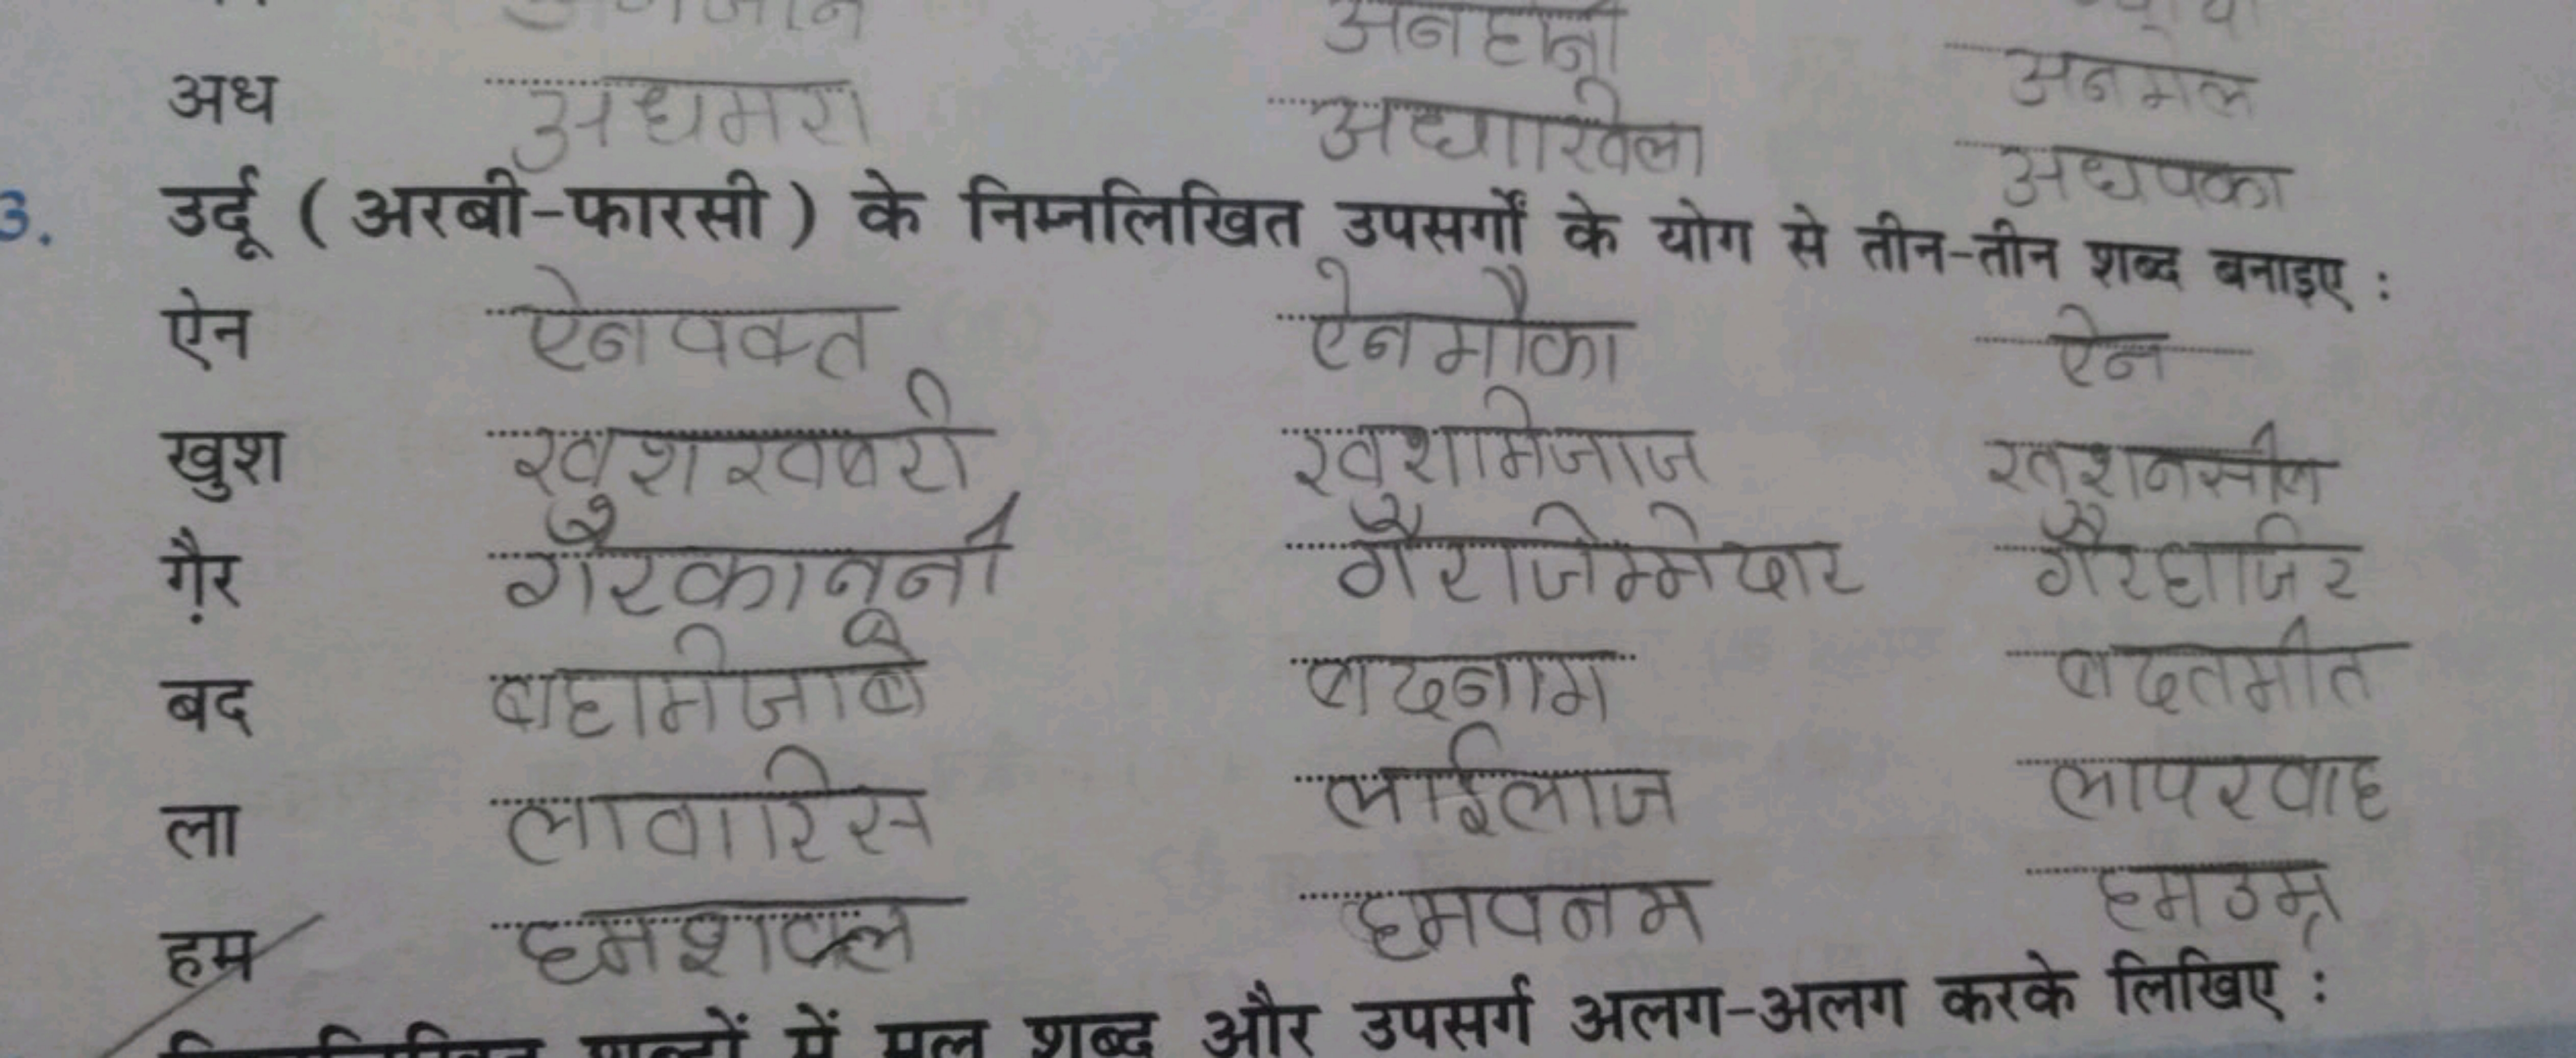 अनहोनी
अनमेल
अध अधमरा अधखिला अधपका
3. उर्दू ( अरबी-फारसी ) के निम्नलिखित उपसर्गों के योग से तीन-तीन शब्द बनाइए :
ऐन ऐनवक्त ऐनमौका ऐन
खुश खुशखबरी खुशमिजाज खुशनसीब
ग़ैर गैरकानूनी गैरजिम्मेदार गैरहाजिर
बद बदनाम बदतमीत
ला लावारिस लाईलाज लापरवाह
हम हमशक्ल हमवनम हमउम्र
में मूल शब्द और उपसर्ग अलग-अलग करके लिखिए :